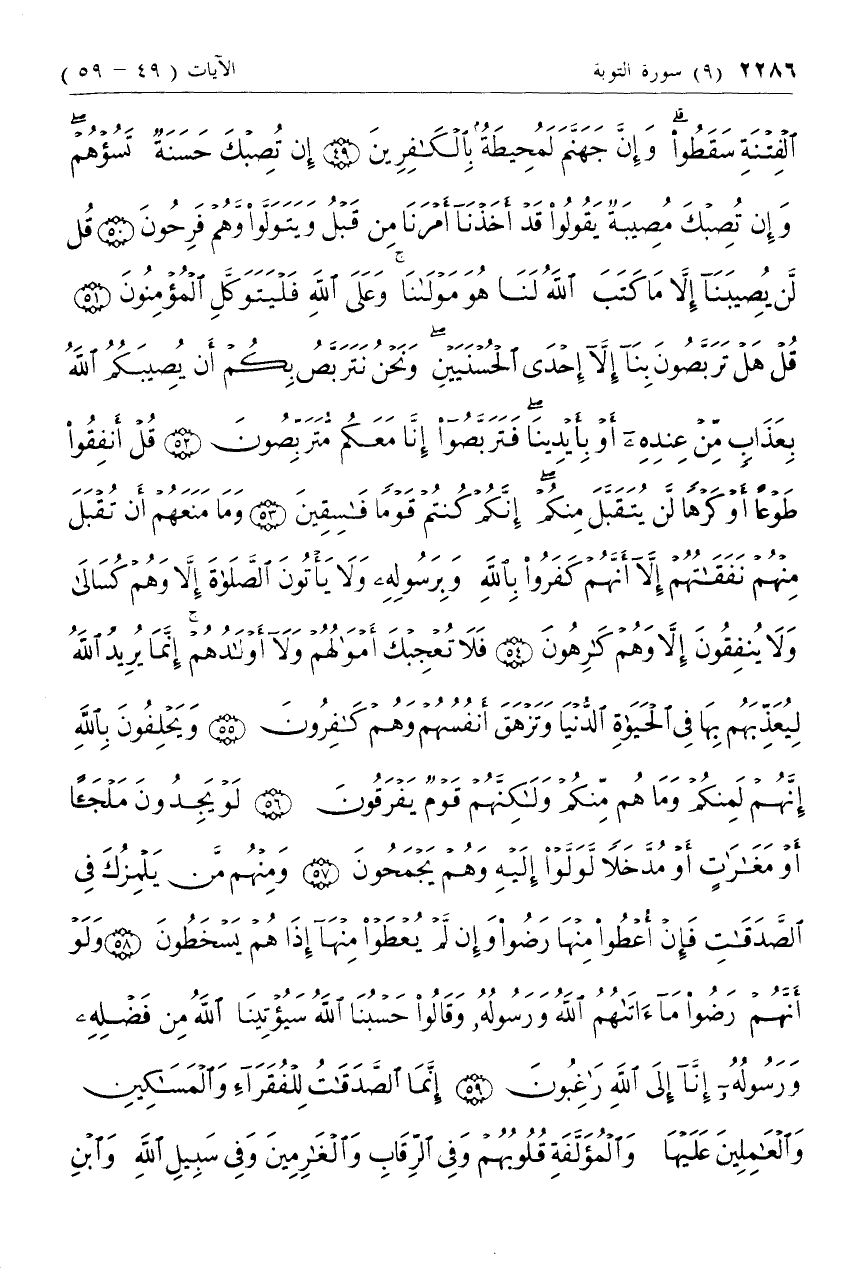 ٢٢٨٦ (٩) سورة التوبة الآيات ( ٤٩ - ٥٩ )
ٱلْفِتْنَةِ سَقَطُوا۟ ۗ وَإِنَّ جَهَنَّمَ لَمُحِيطَةٌۢ بِٱلْكَـٰفِرِينَ ﴿٤٩﴾ إِن تُصِبْكَ حَسَنَةٌ تَسُؤْهُمْ ۖ
وَإِن تُصِبْكَ مُصِيبَةٌ يَقُولُوا۟ قَدْ أَخَذْنَآ أَمْرَنَا مِن قَبْلُ وَيَتَوَلَّوا۟ وَّهُمْ فَرِحُونَ ﴿٥٠﴾ قُل
لَّن يُصِيبَنَآ إِلَّا مَا كَتَبَ ٱللَّهُ لَنَا هُوَ مَوْلَىٰنَا ۚ وَعَلَى ٱللَّهِ فَلْيَتَوَكَّلِ ٱلْمُؤْمِنُونَ ﴿٥١﴾
قُلْ هَلْ تَرَبَّصُونَ بِنَآ إِلَّآ إِحْدَى ٱلْحُسْنَيَيْنِ ۖ وَنَحْنُ نَتَرَبَّصُ بِكُمْ أَن يُصِيبَكُمُ ٱللَّهُ
بِعَذَابٍ مِّنْ عِندِهِۦٓ أَوْ بِأَيْدِينَا ۖ فَتَرَبَّصُوٓا۟ إِنَّا مَعَكُم مُّتَرَبِّصُونَ ﴿٥٢﴾ قُلْ أَنفِقُوا۟
طَوْعًا أَوْ كَرْهًا لَّن يُتَقَبَّلَ مِنكُمْ ۖ إِنَّكُمْ كُنتُمْ قَوْمًا فَـٰسِقِينَ ﴿٥٣﴾ وَمَا مَنَعَهُمْ أَن تُقْبَلَ
مِنْهُمْ نَفَقَـٰتُهُمْ إِلَّآ أَنَّهُمْ كَفَرُوا۟ بِٱللَّهِ وَبِرَسُولِهِۦ وَلَا يَأْتُونَ ٱلصَّلَوٰةَ إِلَّا وَهُمْ كُسَالَىٰ
وَلَا يُنفِقُونَ إِلَّا وَهُمْ كَـٰرِهُونَ ﴿٥٤﴾ فَلَا تُعْجِبْكَ أَمْوَٰلُهُمْ وَلَآ أَوْلَـٰدُهُمْ ۚ إِنَّمَا يُرِيدُ ٱللَّهُ
لِيُعَذِّبَهُم بِهَا فِى ٱلْحَيَوٰةِ ٱلدُّنْيَا وَتَزْهَقَ أَنفُسُهُمْ وَهُمْ كَـٰفِرُونَ ﴿٥٥﴾ وَيَحْلِفُونَ بِٱللَّهِ
إِنَّهُمْ لَمِنكُمْ وَمَا هُم مِّنكُمْ وَلَـٰكِنَّهُمْ قَوْمٌ يَفْرَقُونَ ﴿٥٦﴾ لَوْ يَجِدُونَ مَلْجَـًٔا
أَوْ مَغَـٰرَٰتٍ أَوْ مُدَّخَلًا لَّوَلَّوْا۟ إِلَيْهِ وَهُمْ يَجْمَحُونَ ﴿٥٧﴾ وَمِنْهُم مَّن يَلْمِزُكَ فِى
ٱلصَّدَقَـٰتِ فَإِنْ أُعْطُوا۟ مِنْهَا رَضُوا۟ وَإِن لَّمْ يُعْطَوْا۟ مِنْهَآ إِذَا هُمْ يَسْخَطُونَ ﴿٥٨﴾ وَلَوْ
أَنَّهُمْ رَضُوا۟ مَآ ءَاتَىٰهُمُ ٱللَّهُ وَرَسُولُهُۥ وَقَالُوا۟ حَسْبُنَا ٱللَّهُ سَيُؤْتِينَا ٱللَّهُ مِن فَضْلِهِۦ
وَرَسُولُهُۥٓ إِنَّآ إِلَى ٱللَّهِ رَٰغِبُونَ ﴿٥٩﴾ إِنَّمَا ٱلصَّدَقَـٰتُ لِلْفُقَرَآءِ وَٱلْمَسَـٰكِينِ
وَٱلْعَـٰمِلِينَ عَلَيْهَا وَٱلْمُؤَلَّفَةِ قُلُوبُهُمْ وَفِى ٱلرِّقَابِ وَٱلْغَـٰرِمِينَ وَفِى سَبِيلِ ٱللَّهِ وَٱبْنِ